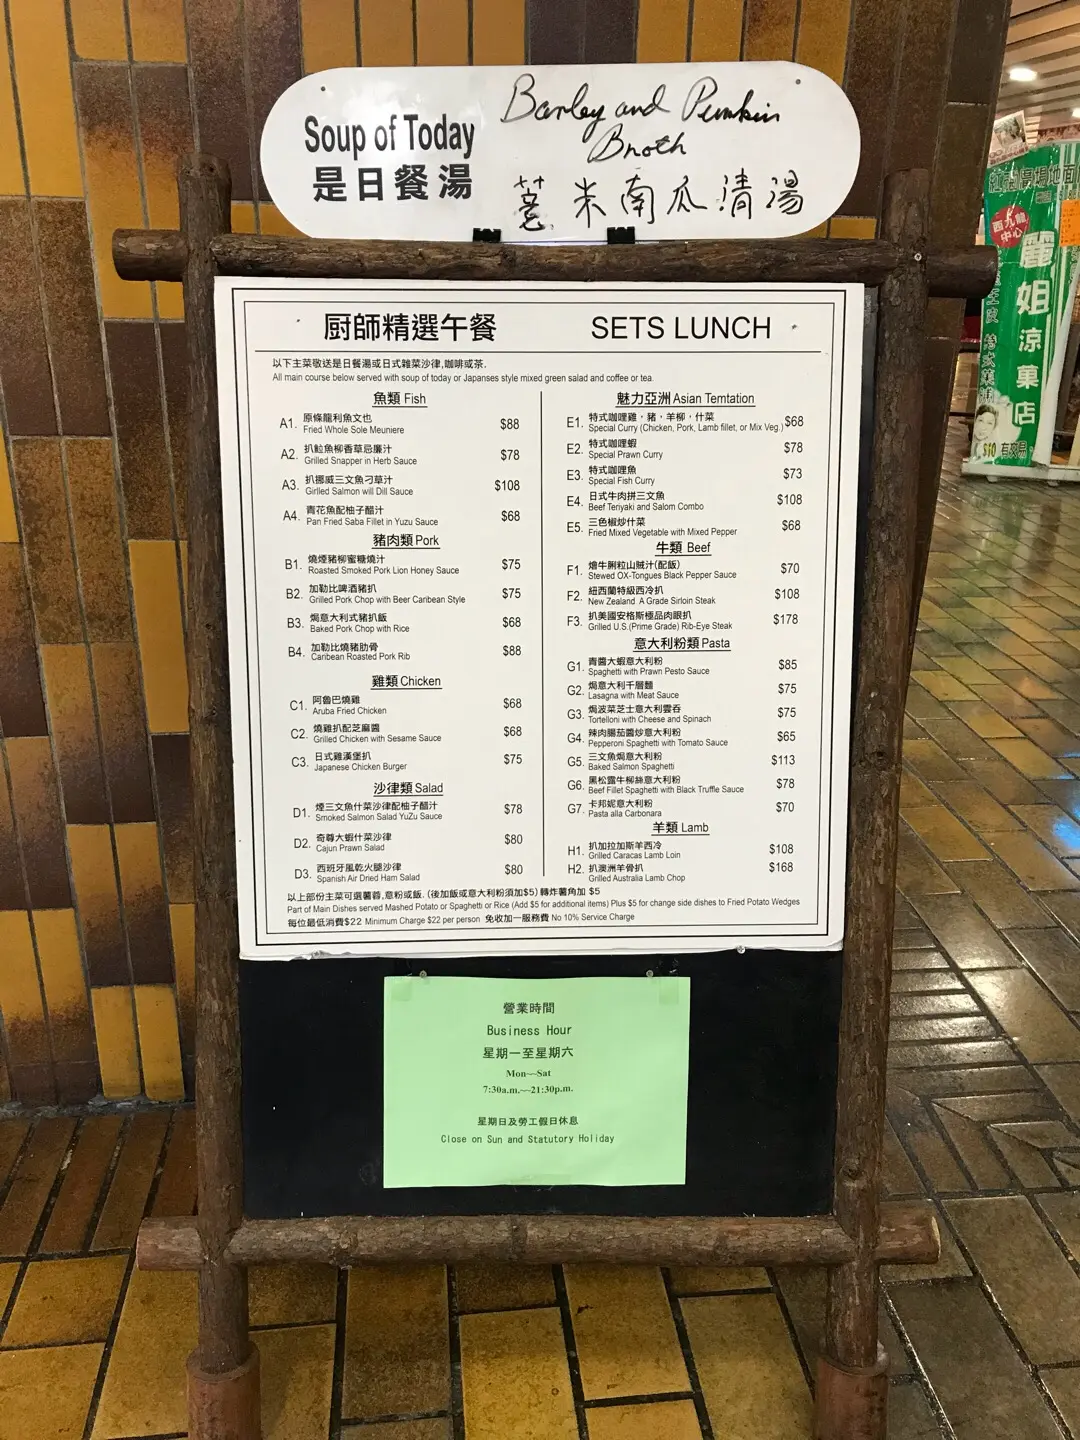 Soup of Today
是日餐湯
Barley and Pumkin
Broth
薏米南瓜清湯
厨師精選午餐 SETS LUNCH
以下主菜敬送是日餐湯或日式雜菜沙律,咖啡或茶.
All main course below served with soup of today or Japanses style mixed green salad and coffee or tea.
魚類 Fish
A1. 原條龍利魚文也 $88
Fried Whole Sole Meuniere
A2. 扒𩶘魚柳香草忌廉汁 $78
Grilled Snapper in Herb Sauce
A3. 扒挪威三文魚刁草汁 $108
Girlled Salmon will Dill Sauce
A4. 青花魚配柚子醋汁 $68
Pan Fried Saba Fillet in Yuzu Sauce
豬肉類 Pork
B1. 燒煙豬柳蜜糖燒汁 $75
Roasted Smoked Pork Lion Honey Sauce
B2. 加勒比啤酒豬扒 $75
Grilled Pork Chop with Beer Caribean Style
B3. 焗意大利式豬扒飯 $68
Baked Pork Chop with Rice
B4. 加勒比燒豬肋骨 $88
Caribean Roasted Pork Rib
雞類 Chicken
C1. 阿魯巴燒雞 $68
Aruba Fried Chicken
C2. 燒雞扒配芝麻醬 $68
Grilled Chicken with Sesame Sauce
C3. 日式雞漢堡扒 $75
Japanese Chicken Burger
沙律類 Salad
D1. 煙三文魚什菜沙律配柚子醋汁 $78
Smoked Salmon Salad YuZu Sauce
D2. 奇尊大蝦什菜沙律 $80
Cajun Prawn Salad
D3. 西班牙風乾火腿沙律 $80
Spanish Air Dried Ham Salad
魅力亞洲 Asian Temtation
E1. 特式咖喱雞，豬，羊柳，什菜 $68
Special Curry (Chicken, Pork, Lamb fillet, or Mix Veg.)
E2. 特式咖喱蝦 $78
Special Prawn Curry
E3. 特式咖喱魚 $73
Special Fish Curry
E4. 日式牛肉拼三文魚 $108
Beef Teriyaki and Salom Combo
E5. 三色椒炒什菜 $68
Fried Mixed Vegetable with Mixed Pepper
牛類 Beef
F1. 燴牛脷粒山賊汁(配飯) $70
Stewed OX-Tongues Black Pepper Sauce
F2. 紐西蘭特級西冷扒 $108
New Zealand A Grade Sirloin Steak
F3. 扒美國安格斯極品肉眼扒 $178
Grilled U.S.(Prime Grade) Rib-Eye Steak
意大利粉類 Pasta
G1. 青醬大蝦意大利粉 $85
Spaghetti with Prawn Pesto Sauce
G2. 焗意大利千層麵 $75
Lasagna with Meat Sauce
G3. 焗波菜芝士意大利雲吞 $75
Tortelloni with Cheese and Spinach
G4. 辣肉腸茄醬炒意大利粉 $65
Pepperoni Spaghetti with Tomato Sauce
G5. 三文魚焗意大利粉 $113
Baked Salmon Spaghetti
G6. 黑松露牛柳絲意大利粉 $78
Beef Fillet Spaghetti with Black Truffle Sauce
G7. 卡邦妮意大利粉 $70
Pasta alla Carbonara
羊類 Lamb
H1. 扒加拉加斯羊西冷 $108
Grilled Caracas Lamb Loin
H2. 扒澳洲羊骨扒 $168
Grilled Australia Lamb Chop
以上部份主菜可選薯蓉,意粉或飯. (後加飯或意大利粉須加$5) 轉炸薯角加 $5
Part of Main Dishes served Mashed Potato or Spaghetti or Rice (Add $5 for additional items) Plus $5 for change side dishes to Fried Potato Wedges
每位最低消費$22 Minimum Charge $22 per person 免收加一服務費 No 10% Service Charge
營業時間
Business Hour
星期一至星期六
Mon—Sat
7:30a.m.—21:30p.m.
星期日及勞工假日休息
Close on Sun and Statutory Holiday
西九龍
中心
麗姐涼菓店
$10